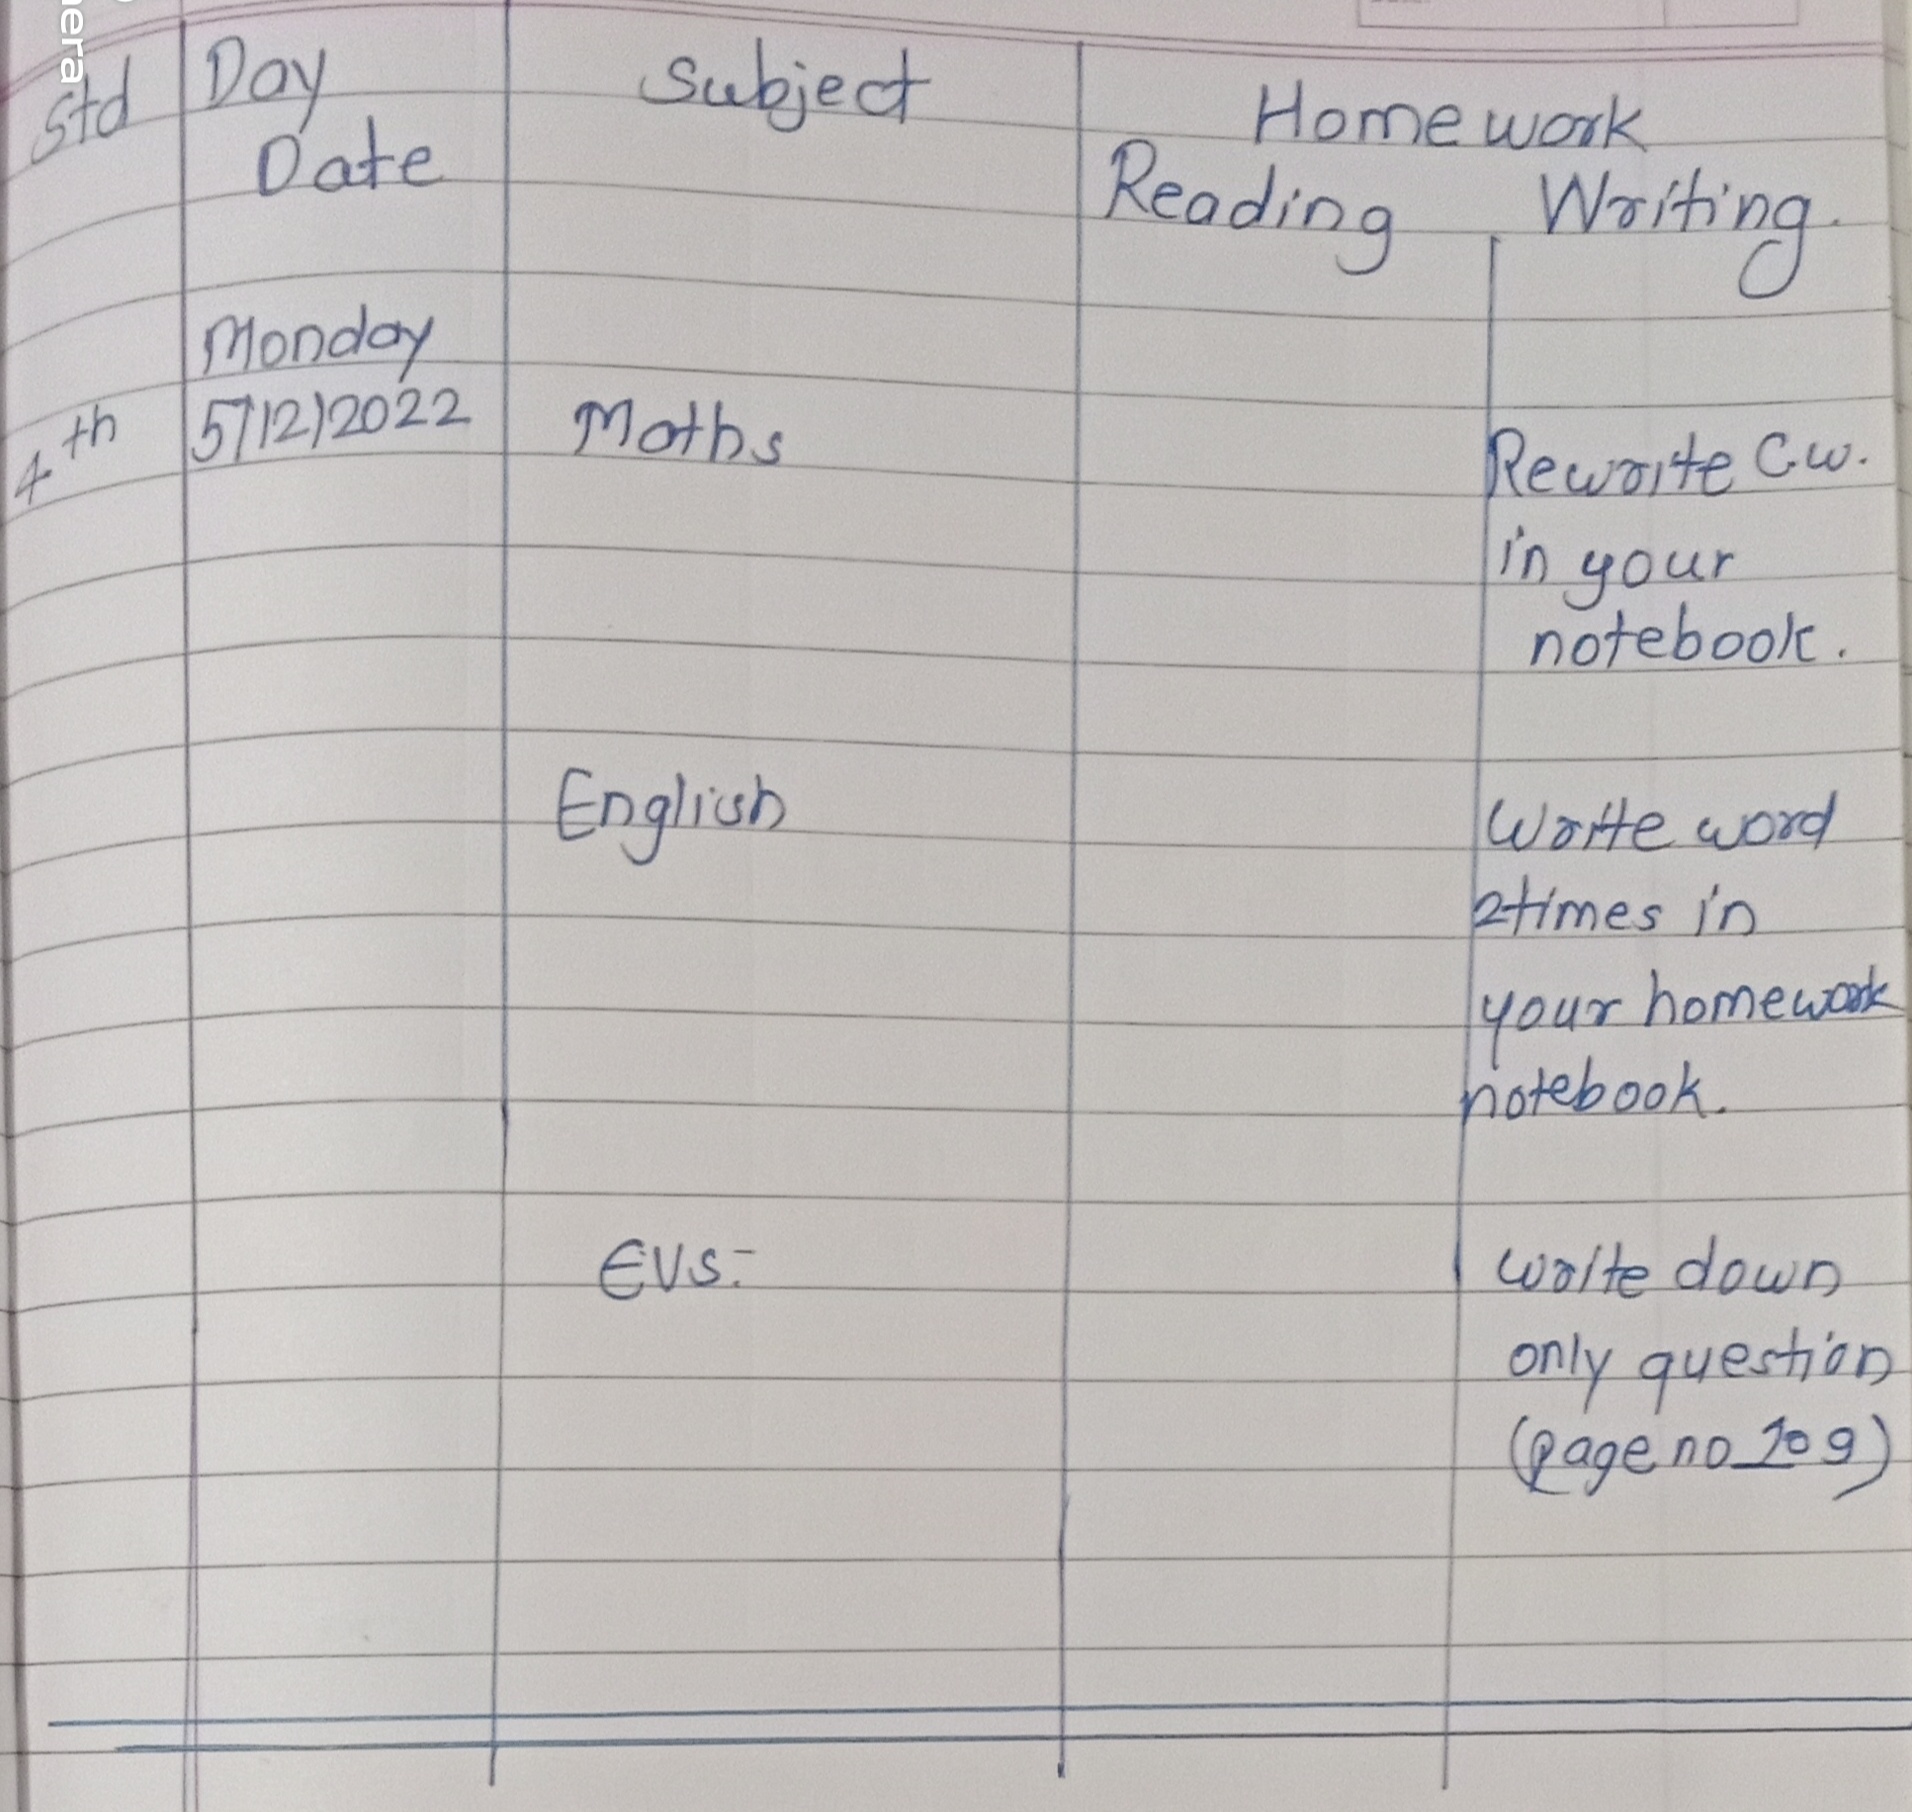 era
Std Day Subject Homework
Date Reading Writing.
Monday
4th 5/12/2022 Maths Rewrite Cw.
in your
notebook.
English Write word
2times in
your homework
notebook.
EVS:- Write down
only question
(page no 209)